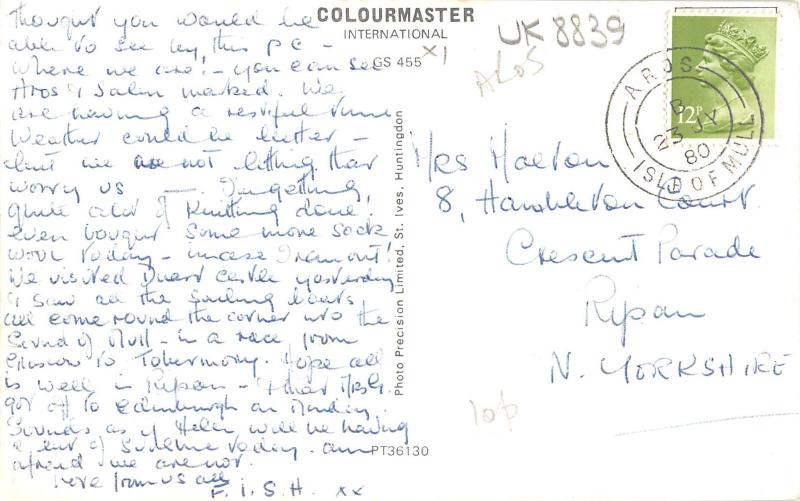 Thought you would be
able to see by this p c -
where we are! - you can see
Aros & Salen marked. We
are having a restful time
Weather could be better -
but we are not letting that
worry us —. I'm getting
quite a lot of Knitting done,
even bought some more sock
wool today - incase I run out!
We visited Duart castle yesterday
& saw all the sailing boats
all come round the corner into the
Sound of Mull - in a race from
to Tobermory. Hope all
is well in Ripon - & that Mrs G.
got off to Edinburgh on Monday.
Sounds as if Helen will be having
a bit of sunshine today. am
afraid we are not.
Love from us all
F. I. S. H. xx
COLOURMASTER
INTERNATIONAL
GS 455 X1
Photo Precision Limited, St. Ives, Huntingdon
PT36130
UK 8839
AROS
12P
AROS
B
23 JY
80
ISLE OF MULL
Mrs Halton
8, Hambleton Court
Crescent Parade
Ripon
N. YORKSHIRE
10p